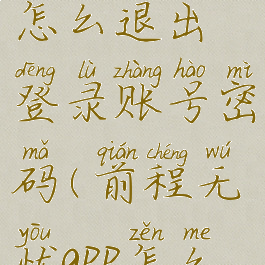 怎么退出
dēng lù zhàng hào mì
登录账号密
mǎ qián chéng wú
码(前程无
yōu zěn me
忧app怎么